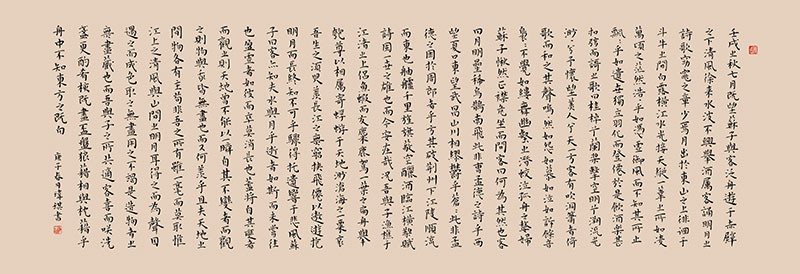 壬戌之秋七月既望蘇子與客泛舟遊于赤壁
之下清風徐來水波不興舉酒屬客誦明月之
詩歌窈窕之章少焉月出於東山之上徘徊于
斗牛之間白露橫江水光接天縱一葦之所如凌
萬頃之茫然浩浩乎如馮虛御風而不知其所止
飄飄乎如遺世獨立羽化而登僊於是飲酒樂甚
扣舷而歌之歌曰桂棹兮蘭槳擊空明兮泝流光
渺渺兮予懷望美人兮天一方客有吹洞簫者倚
歌而和之其聲嗚嗚然如怨如慕如泣如訴餘音
裊裊不絕如縷舞幽壑之潛蛟泣孤舟之嫠婦
蘇子愀然正襟危坐而問客曰何為其然也客
曰月明星稀烏鵲南飛此非曹孟德之詩乎西
望夏口東望武昌山川相繆鬱乎蒼蒼此非孟
德之困于周郎者乎方其破荊州下江陵順流
而東也舳艫千里旌旗蔽空釃酒臨江橫槊賦
詩固一世之雄也而今安在哉況吾與子漁樵于
江渚之上侶魚蝦而友麋鹿駕一葉之扁舟舉
匏尊以相屬寄蜉蝣于天地渺滄海之一粟哀
吾生之須臾羨長江之無窮挾飛僊以遨遊抱
明月而長終知不可乎驟得托遺響于悲風蘇
子曰客亦知夫水與月乎逝者如斯而未嘗往
也盈虛者如彼而卒莫消長也蓋將自其變者
而觀之則天地曾不能以一瞬自其不變者而觀
之則物與我皆無盡也而又何羨乎且夫天地之
間物各有主苟非吾之所有雖一毫而莫取惟
江上之清風與山間之明月耳得之而為聲目
遇之而成色取之無盡用之不竭是造物者之
無盡藏也而吾與子之所共適客喜而笑洗
盞更酌肴核既盡杯盤狼籍相與枕藉乎
舟中不知東方之既白
庚子春月瑋祺書